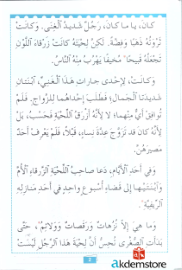 كان، يا ما كان، رجل شديد الغنى. وكانت
ثروته ذهبا وفضة. لكن لحيته كانت زرقاء اللون
تجعله قبيحا مخيفا يهرب منه الناس.
وكانت، لإحدى جارات هذا الغني، ابنتان
شديدتا الجمال؛ فطلب إحداهما للزواج. فلم
توافق أي منهما، لا لأنه أزرق اللحية فحسب، بل
لأنه كان قد تزوج عدة نساء، قبلا، فلم يعرف أحد
مصيرهن.
وفي أحد الأيام، دعا صاحب اللحية الزرقاء الأم
وابنتيها إلى قضاء أسبوع واحد في أحد منازله
الريفية.
وما هي إلا نزهات ورقصات وولائم، حتى
بدأت الصغرى تحس أن لحية هذا الرجل ليست
akdemstore